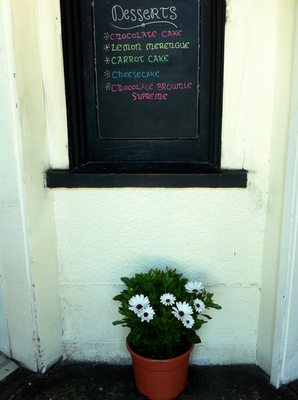 Desserts
* Chocolate Cake
* Lemon Merengue
* Carrot Cake
* Cheesecake
* Chocolate Brownie
Supreme